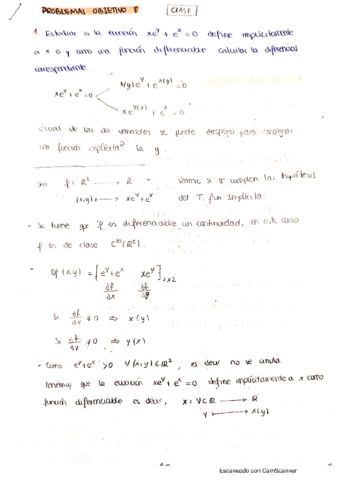 PROBLEMAS OBJETIVO 5
CLASE
1 Estudiar si la ecuación xe^y + e^x = 0 define implícitamente
a x o y como una función diferenciable calcular la diferencial
correspondiente.
x(y)e^y + e^x(y) = 0
xe^y + e^x = 0
xe^y(x) + e^x = 0
¿cual de las dos variables se puede despejar para conseguir
un función explícita? la y.
Sea f: ℝ² → ℝ
(x,y) ↦ xe^y + e^x
Veamos si se cumplen las hipótesis
del T. fun. Implícita.
- Se tiene que f es diferenciable con continuidad, en este caso
f es de clase C^∞(ℝ²).
- Df(x,y) = [e^y + e^x xe^y]₁ₓ₂
∂f/∂x ∂f/∂y
Si ∂f/∂x ≠ 0 ⇒ x(y)
Si ∂f/∂y ≠ 0 ⇒ y(x)
- Como e^y + e^x > 0 ∀(x,y) ∈ ℝ², es decir no se anula
tenemos que la ecuación xe^y + e^x = 0 define implícitamente a x como
función diferenciable es decir, x: V⊂ℝ → ℝ
y ↦ x(y)
Escaneado con CamScanner